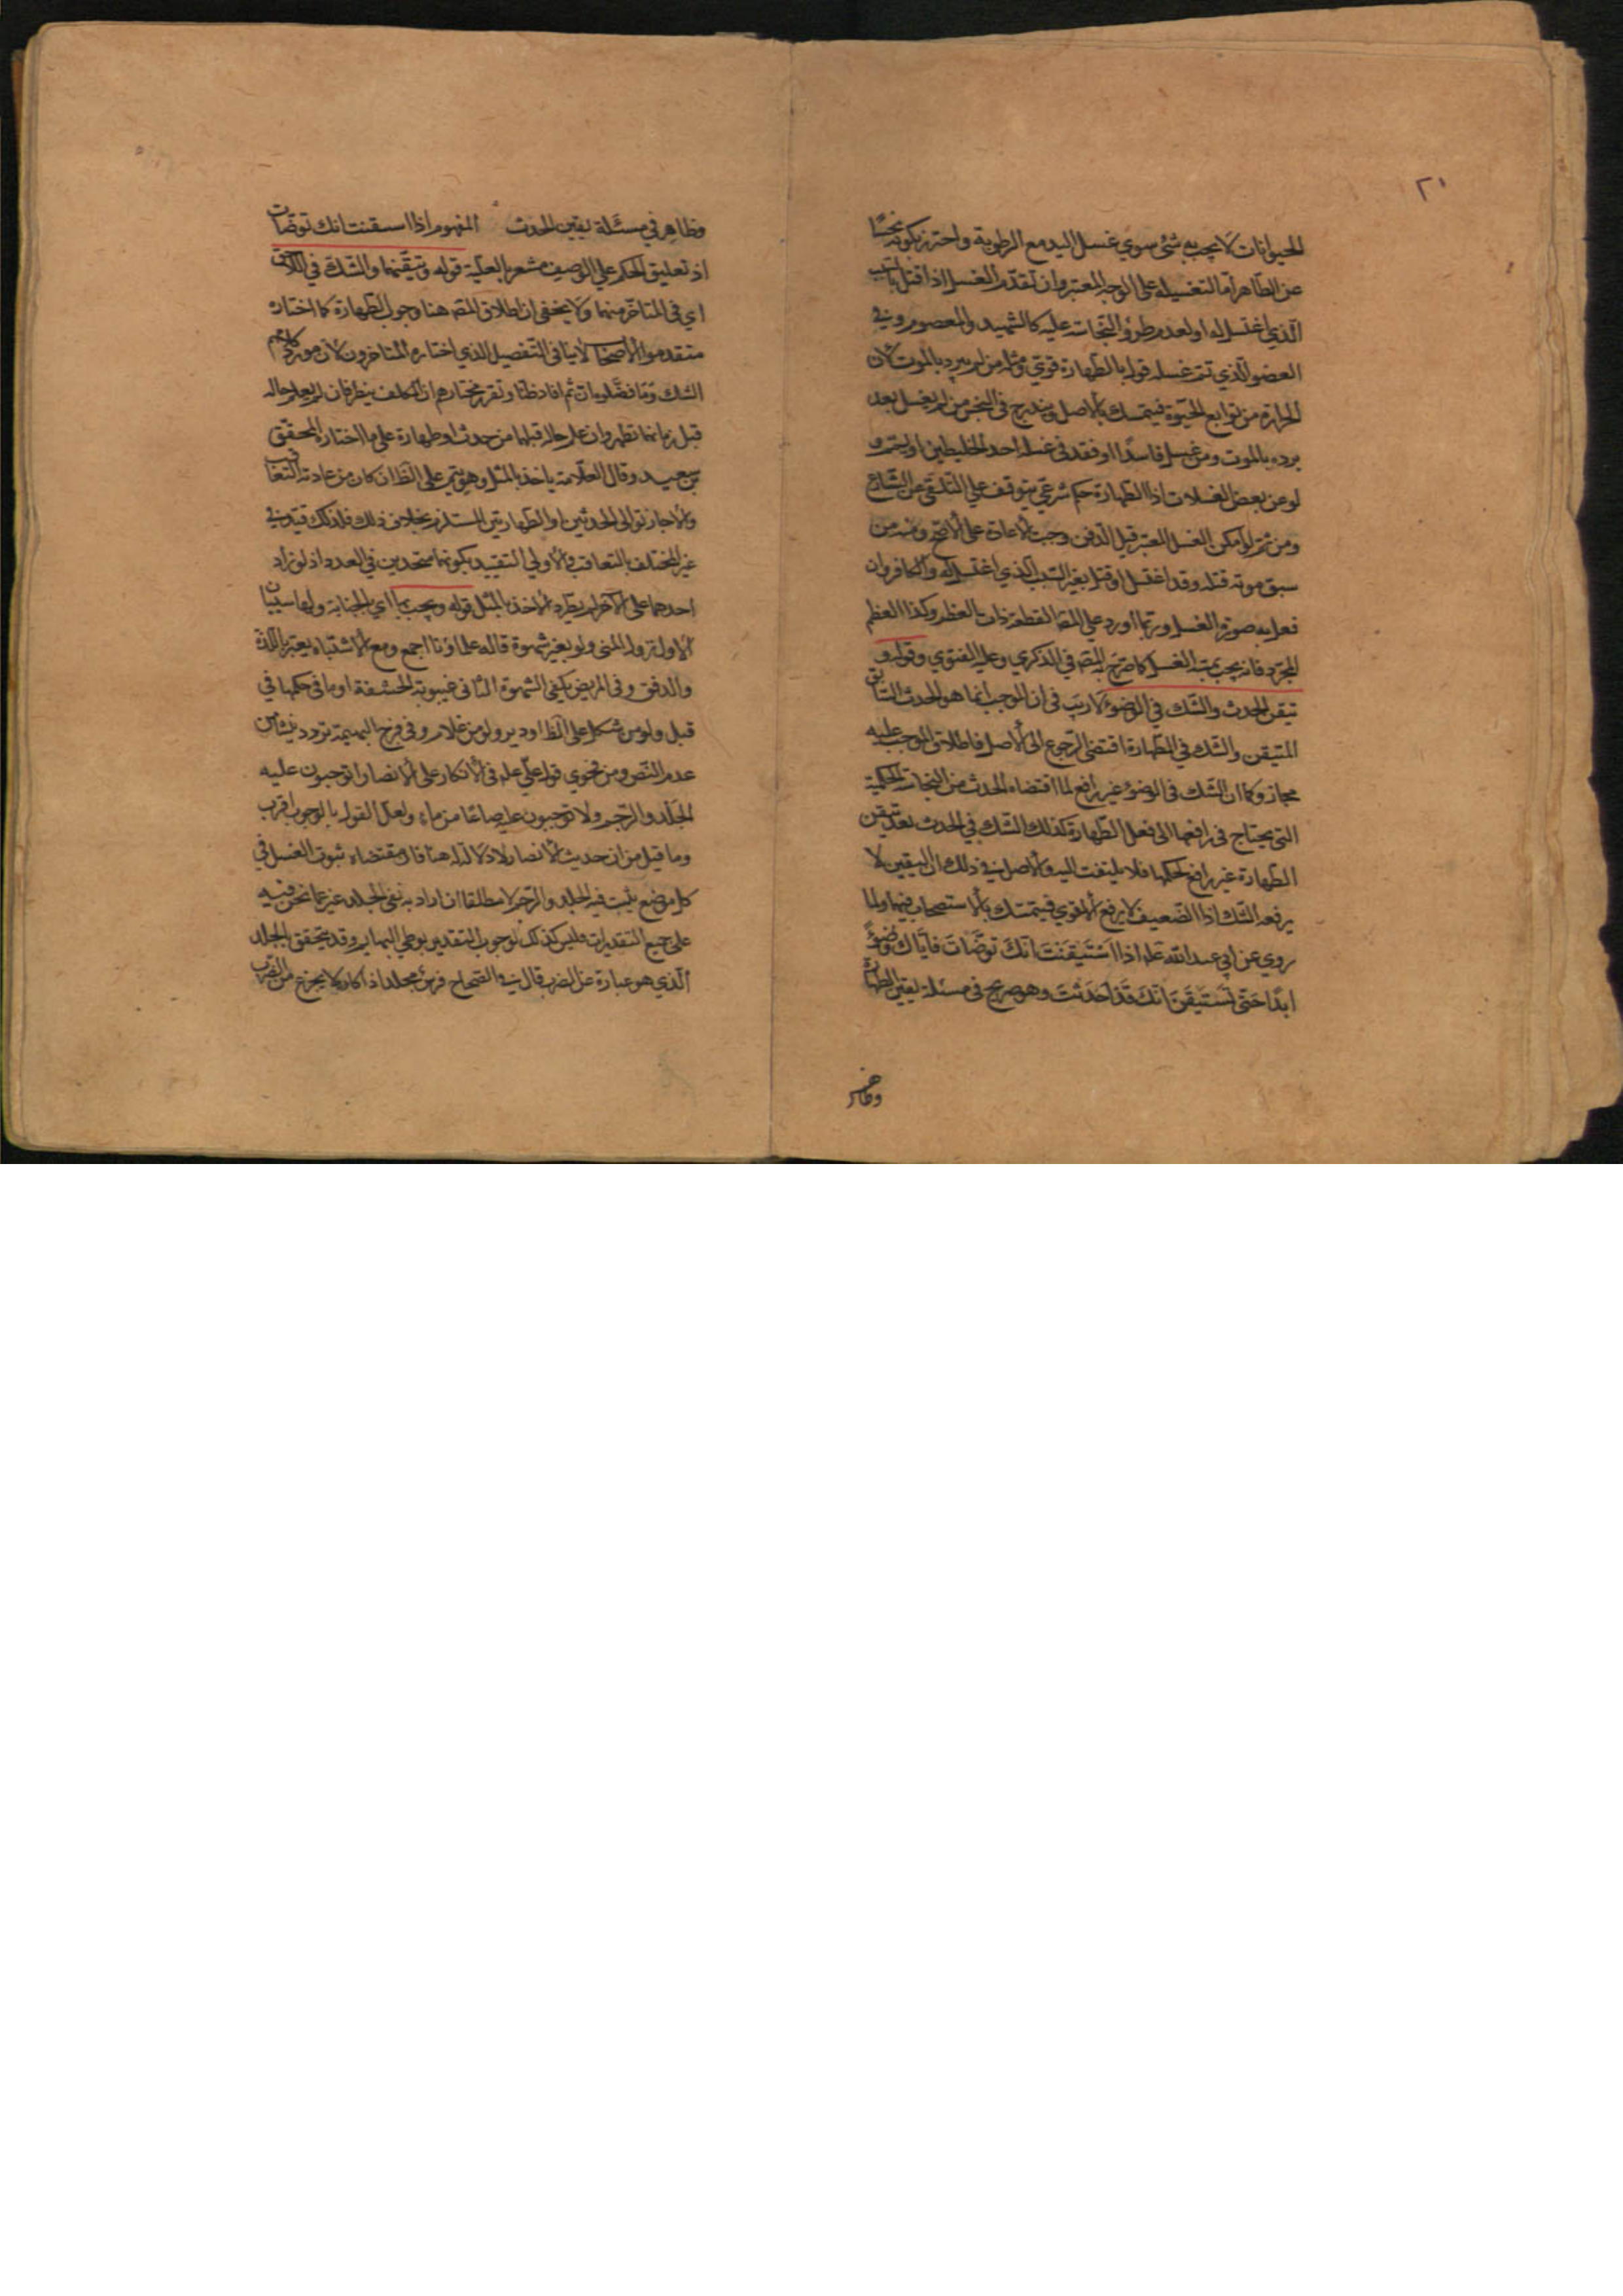 ٢١
الحيوانات لا يجب به شئ سوي غسل اليد مع الرطوبة واحترز بكونه نجسًا
عن الطاهر اما لتغسيله على الوجه المعتبر وان تقدم الغسل اذا قتل بالسبب
الذي اغتسل له او لعدم طرؤ النجاسة عليه كالشهيد والمعصوم وفي
العضو الذي تتم غسله قول بالطهارة قوي ومثله من لم يبرد بالموت لان
الحرارة من توابع الحيوة فيتمسك بالاصل ويندرج في النجس من لم يغسل بعد
برده بالموت ومن غسل فاسدًا او فقد في غسله احد الخليطين او يتمم
لو عن بعض الغسلات اذ الطهارة حكم شرعي يتوقف على التلقي عن الشارع
ومن ثم لو امكن الغسل المعتبر قبل الدفن وجبت الاعادة على الاصح ومنه من
سبق موته قتله وقد اغتسل او قتل بغير السبب الذي اغتسل له والكافر وان
فعل به صورة الغسل وربما اورد على المصـ القطعة ذات العظم وكذا العظم
المجرد فانه يجب بمسه الغسل كما صرح به المصـ في الذكري وعليه الفتوي وقوله و
تيقن الحدث والشك في الوضوء لا ريب في ان الموجب انما هو الحدث السابق
المتيقن والشك في الطهارة اقتضى الرجوع الى الاصل فاطلاق الموجب عليه
مجاز وكما ان الشك في الوضوء غير رافع لما اقتضاه الحدث من النجاسة الحكمية
التي يحتاج في رافعها الى فعل الطهارة كذلك الشك في الحدث بعد تيقن
الطهارة غير رافع لحكمها فلا يلتفت اليه والاصل في ذلك ان اليقين لا
يرفعه الشك اذ الضعيف لا يرفع الاقوي فيتمسك بالاستصحاب فيهما ولما
روي عن ابي عبد الله عليه اذا استيقنت انك توضات فاياك وضوءً
ابدًا حتى تستيقن انك قد احدثت وهو صريح في مسئلة يقين الطهارة
وظاهر
وظاهر في مسئلة يقين الحدث المفهوم اذا استيقنت انك توضات
اذ تعليق الحكم على الوصف مشعر بالعلية قوله وتيقنهما والشك في اللاحق
اي في المتاخر منهما ولا يخفى ان اطلاق المصـ هنا وجوب الطهارة كما اختاره
متقدموا الاصحاب لا ينافي التفصيل الذي اختاره المتاخرون لان مورد كلامهم
الشك وما فصلوه ان تم افاد ظنا وتقرر مختارهم ان المكلف ينظر فان لم يعلم حاله
قبل زمانهما تطهر وان علم حاله قبلهما من حدث او طهارة على ما اختاره المحقق
بن سعيد وقال العلامة ياخذ بالمثل وهو يتم على الظ ان كان من عادته التعاقب
والا جاز توالي الحدثين او الطهارتين المستلزم بخلاف ذلك فلذلك قيد في
غير المختلف بالتعاقب والاولي التقييد بكونهما متحدين في العدد اذ لو زاد
احدهما على الاخر لم يطرد الاخذ بالمثل قوله ويجب بها اي بالجنابة ولها سببان
الاول نزول المني ولو بغير شهوة قاله علماؤنا اجمع ومع الاشتباه يعتبر باللذة
والدفق وفي المريض يكفي الشهوة الثاني غيبوبة الحشفة او ما في حكمها في
قبل ولو من مشكل على الظ او دبر ولو من غلام وفي فرج البهيمة تردد ينشأ من
عدم النص ومن فحوي قول علي عليه في الانكار على الانصار اتوجبون عليه
الجلد والرجم ولا توجبون عليه صاعًا من ماء ولعل القول بالوجوب اقرب
وما قيل من ان حديث الانصار لا دلالة له هنا فان مقتضاه ثبوت الغسل في
كل موضع يثبت فيه الجلد والرجم لا مطلقا ان اراد به نفي الجلد عن ما نحن فيه
على جميع التقديرات فليس كذلك لوجوب التقدير بوطي البهايم وقد يتحقق الجلد
الذي هو عبارة عن الضرب قال في الصحاح فرس مجلد اذا كان لا يجزع من الضرب